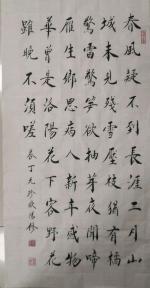 春風疑不到長涯二月山
城未見殘雪壓枝猶有橘
驚雷驚笋欲抽芽夜聞啼
雁生鄉思病入新年感物
華曾是洛陽花下客野花
雖晚不須嗟
丁元珍歐陽修